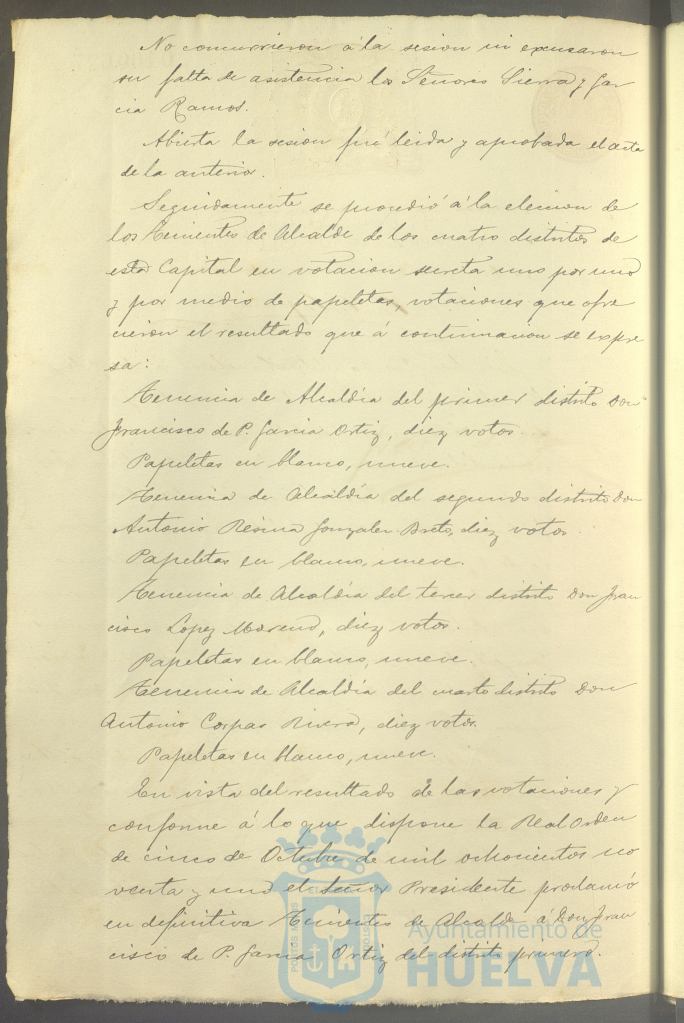 No concurrieron á la sesion ni excusaron
su falta de asistencia los Señores Sierra y Gar
cia Ramos.
Abierta la sesion fué leida y aprobada el acta
de la anterior.
Seguidamente se procedió á la eleccion de
los Tenientes de Alcalde de los cuatro distritos de
esta Capital en votacion secreta uno por uno
y por medio de papeletas, votaciones que ofre
cieron el resultado que á continuacion se expre
sa:
Tenencia de Alcaldía del primer distrito Don
Francisco de P. Garcia Ortiz, diez votos.
Papeletas en blanco, nueve.
Tenencia de Alcaldía del segundo distrito Don
Antonio Resina Gonzalez Brets, diez votos.
Papeletas en blanco, nueve.
Tenencia de Alcaldía del tercer distrito Don Fran
cisco López Moreno, diez votos.
Papeletas en blanco, nueve.
Tenencia de Alcaldía del cuarto distrito Don
Antonio Corpas Rivera, diez votos.
Papeletas en blanco, nueve.
En vista del resultado de las votaciones y
conforme á lo que dispone la Real Orden
de cinco de Octubre de mil ochocientos no
venta y uno el Señor Presidente proclamó
en definitiva Tenientes de Alcalde á Don Fran
cisco de P. Garcia Ortiz del distrito primero.
Ayuntamiento de
HUELVA